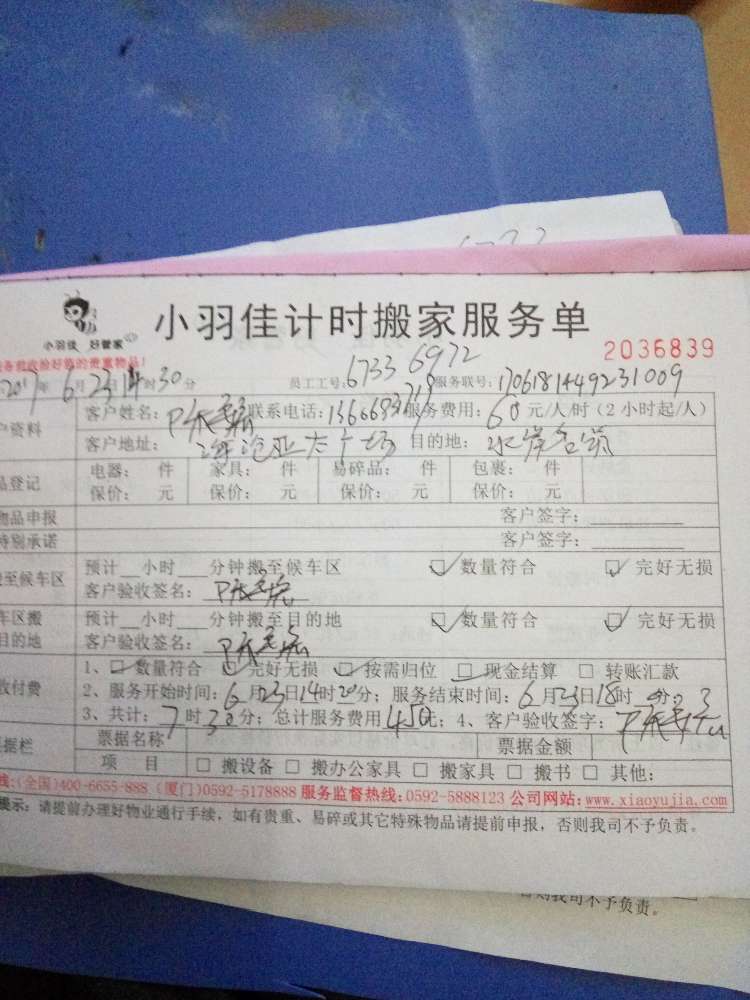 小羽佳计时搬家服务单
小羽佳 好管家
2036839
备前收捡好您的贵重物品!
2017年6月23日14时30分 员工工号:6733 6972 服务联号:1706181449231009
户资料 客户姓名: 联系电话: 服务费用:60元/人/时(2小时起/人)
客户地址:海沧亚太广场 目的地:水岸名筑
品登记 电器: 件 家具: 件 易碎品: 件 包裹: 件
保价: 元 保价: 元 保价: 元 保价: 元
物品申报 客户签字:
特别承诺 客户签字:
至候车区 预计__小时___分钟搬至候车区 数量符合 完好无损
客户验收签名:
车区搬 预计__小时___分钟搬至目的地 数量符合 完好无损
目的地 客户验收签名:
收付费 1、数量符合 完好无损 按需归位 现金结算 转账汇款
2、服务开始时间:6月23日14时20分;服务结束时间:6月23日18时 分;
3、共计:7时30分;总计服务费用450元;4、客户验收签字:
票据栏 票据名称 票据金额
项 目 搬设备 搬办公家具 搬家具 搬书 其他:
线:(全国)400-6655-888 (厦门)0592-5178888 服务监督热线:0592-5888123 公司网站:www.xiaoyujia.com
提示:请提前办理好物业通行手续,如有贵重、易碎或其它特殊物品请提前申报,否则我司不予负责。
否则我司不予负责。